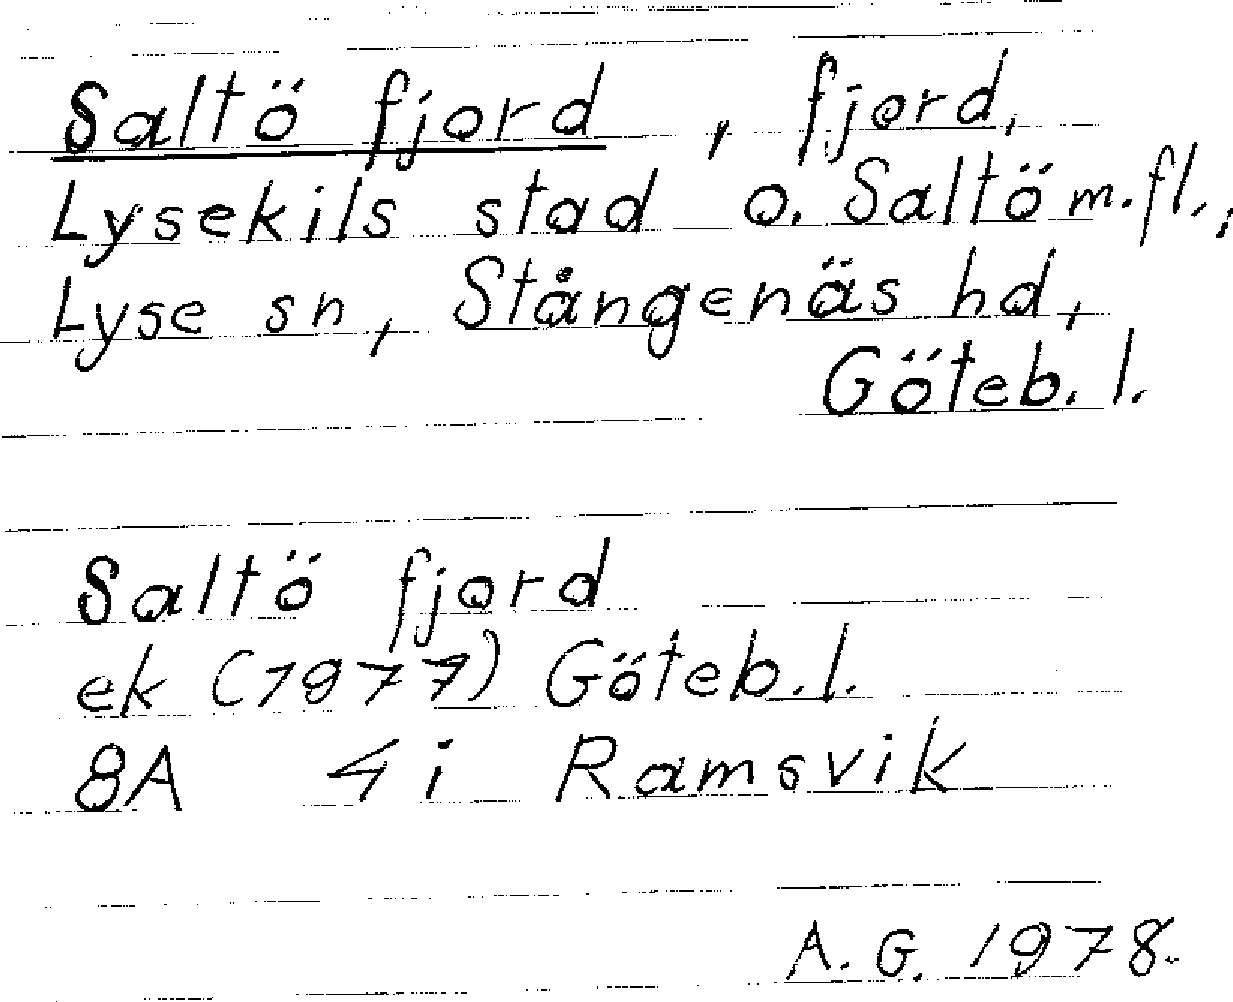 Saltö fjord, fjord,
Lysekils stad o. Saltö m.fl.,
Lyse sn, Stångenäs hd,
Göteb. l.
Saltö fjord
ek (1977) Göteb. l.
8A 4i Ramsvik
A. G. 1978.